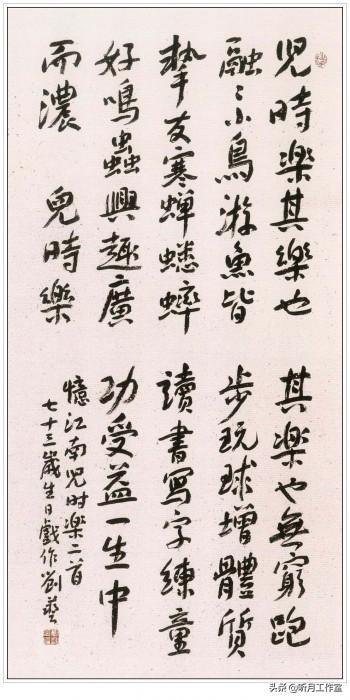 兒時楽其樂也
融〻小鳥游魚皆
摯友寒蟬蟋蟀
好鳴蟲興趣廣
而濃 兒時樂
其樂也無窮跑
步玩球增體質
讀書寫字練童
功受益一生中
憶江南児时楽二首
七十三歲生日戲作劉藝
头条 @听月工作室